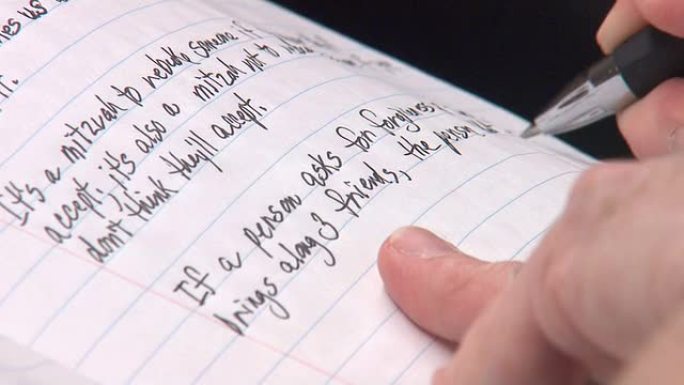 us
it.
It's a mitzvah to rebuke someone if
accept, it's also a mitzvah not to
don't think they'll accept.
If a person asks for forgivness,
brings along 3 friends, the person